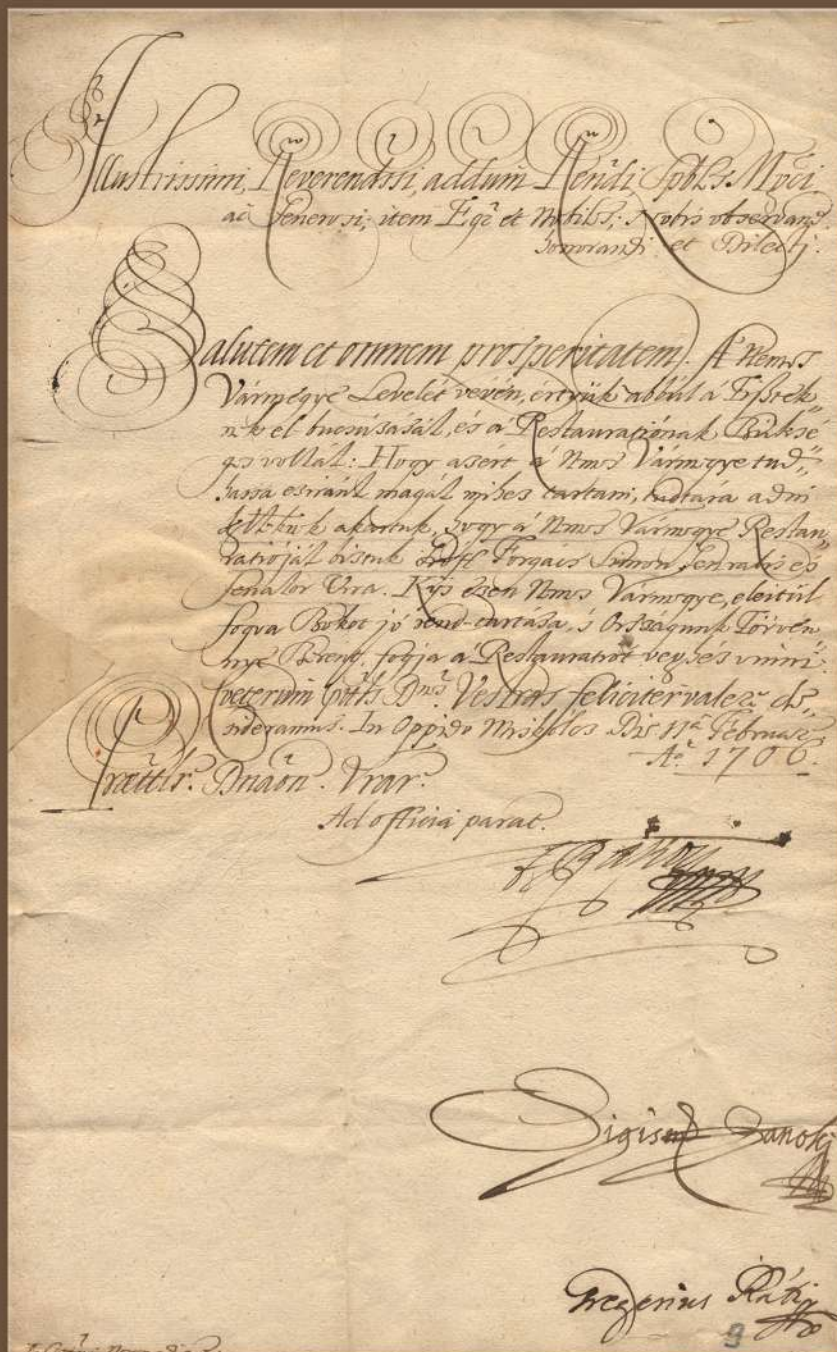 Illustrissimi, Reverendssi, addum Rendi Spbls Mgci
ac Generosi; item Egr et Nobiles; Nobis observand.
honorandi et Dilecti.
Salutem et omnem prosperitatem. A Nemes
Vármegye Levelét vevén, értyük abbúl á Tisztek"
nek el bucsúsását, és á Restauratiónak Szüksé
ges voltát: Hogy azert á Nms Vármegye tud"
hassa eziránt magát mihez tartani, tudtára adni
akartuk, hogy á Nms Vármegye Restau"
ratioját bisztuk Gróff Forgács Simon Generalis és
Senator Urra. Kijs ezen Nms Vármegye, eleitül
fogva Szokot jó rend-tartása, s Országunk Törvén"
nye Szerent, fogja a Restauratiót veghés vinni.
Ceterum Dnes Vestras feliciter valere de"
sideramus. In Oppido Miskolcz Die 11a Februarÿ
Ao. 1706.
Dnaon. Vrar.
Ad officia parat.
Sigism Janoky
Gregorius Ráti
9